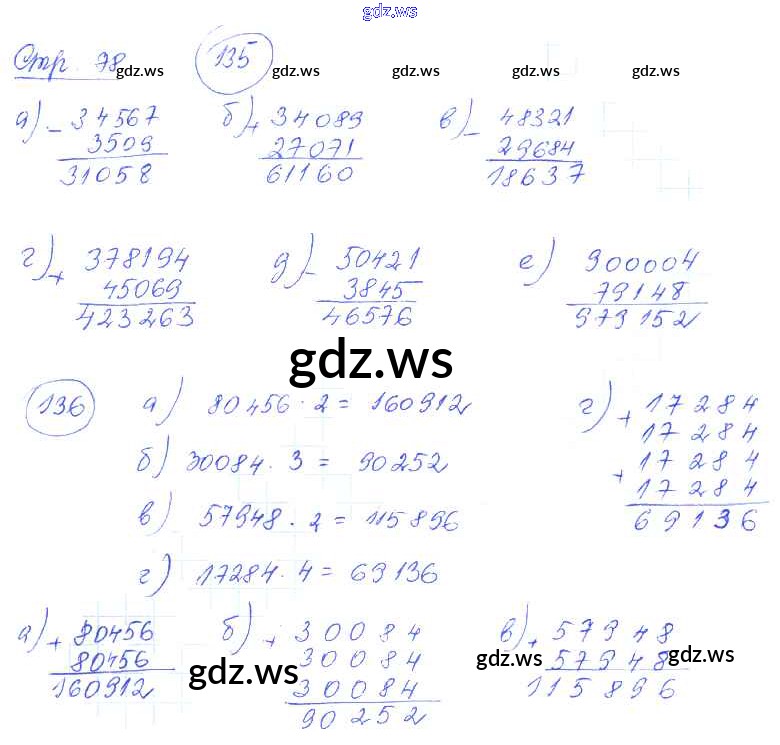 gdz.ws
Стр. 78 gdz.ws 135 gdz.ws gdz.ws gdz.ws gdz.ws
а) - 34567 б) + 34089 в) - 48321
3509 27071 29684
31058 61160 18637
г) + 378194 д) - 50421 е) 900004
45069 3845 79148
423263 46576 979152
gdz.ws
136 а) 80456 · 2 = 160912 г) + 17284
17284
б) 30084 · 3 = 90252 + 17284
17284
в) 57948 · 2 = 115896 69136
г) 17284 · 4 = 69136
а) + 80456 б) + 30084 в) + 57948
80456 30084 57948
160912 30084 115896
90252
gdz.ws gdz.ws gdz.ws